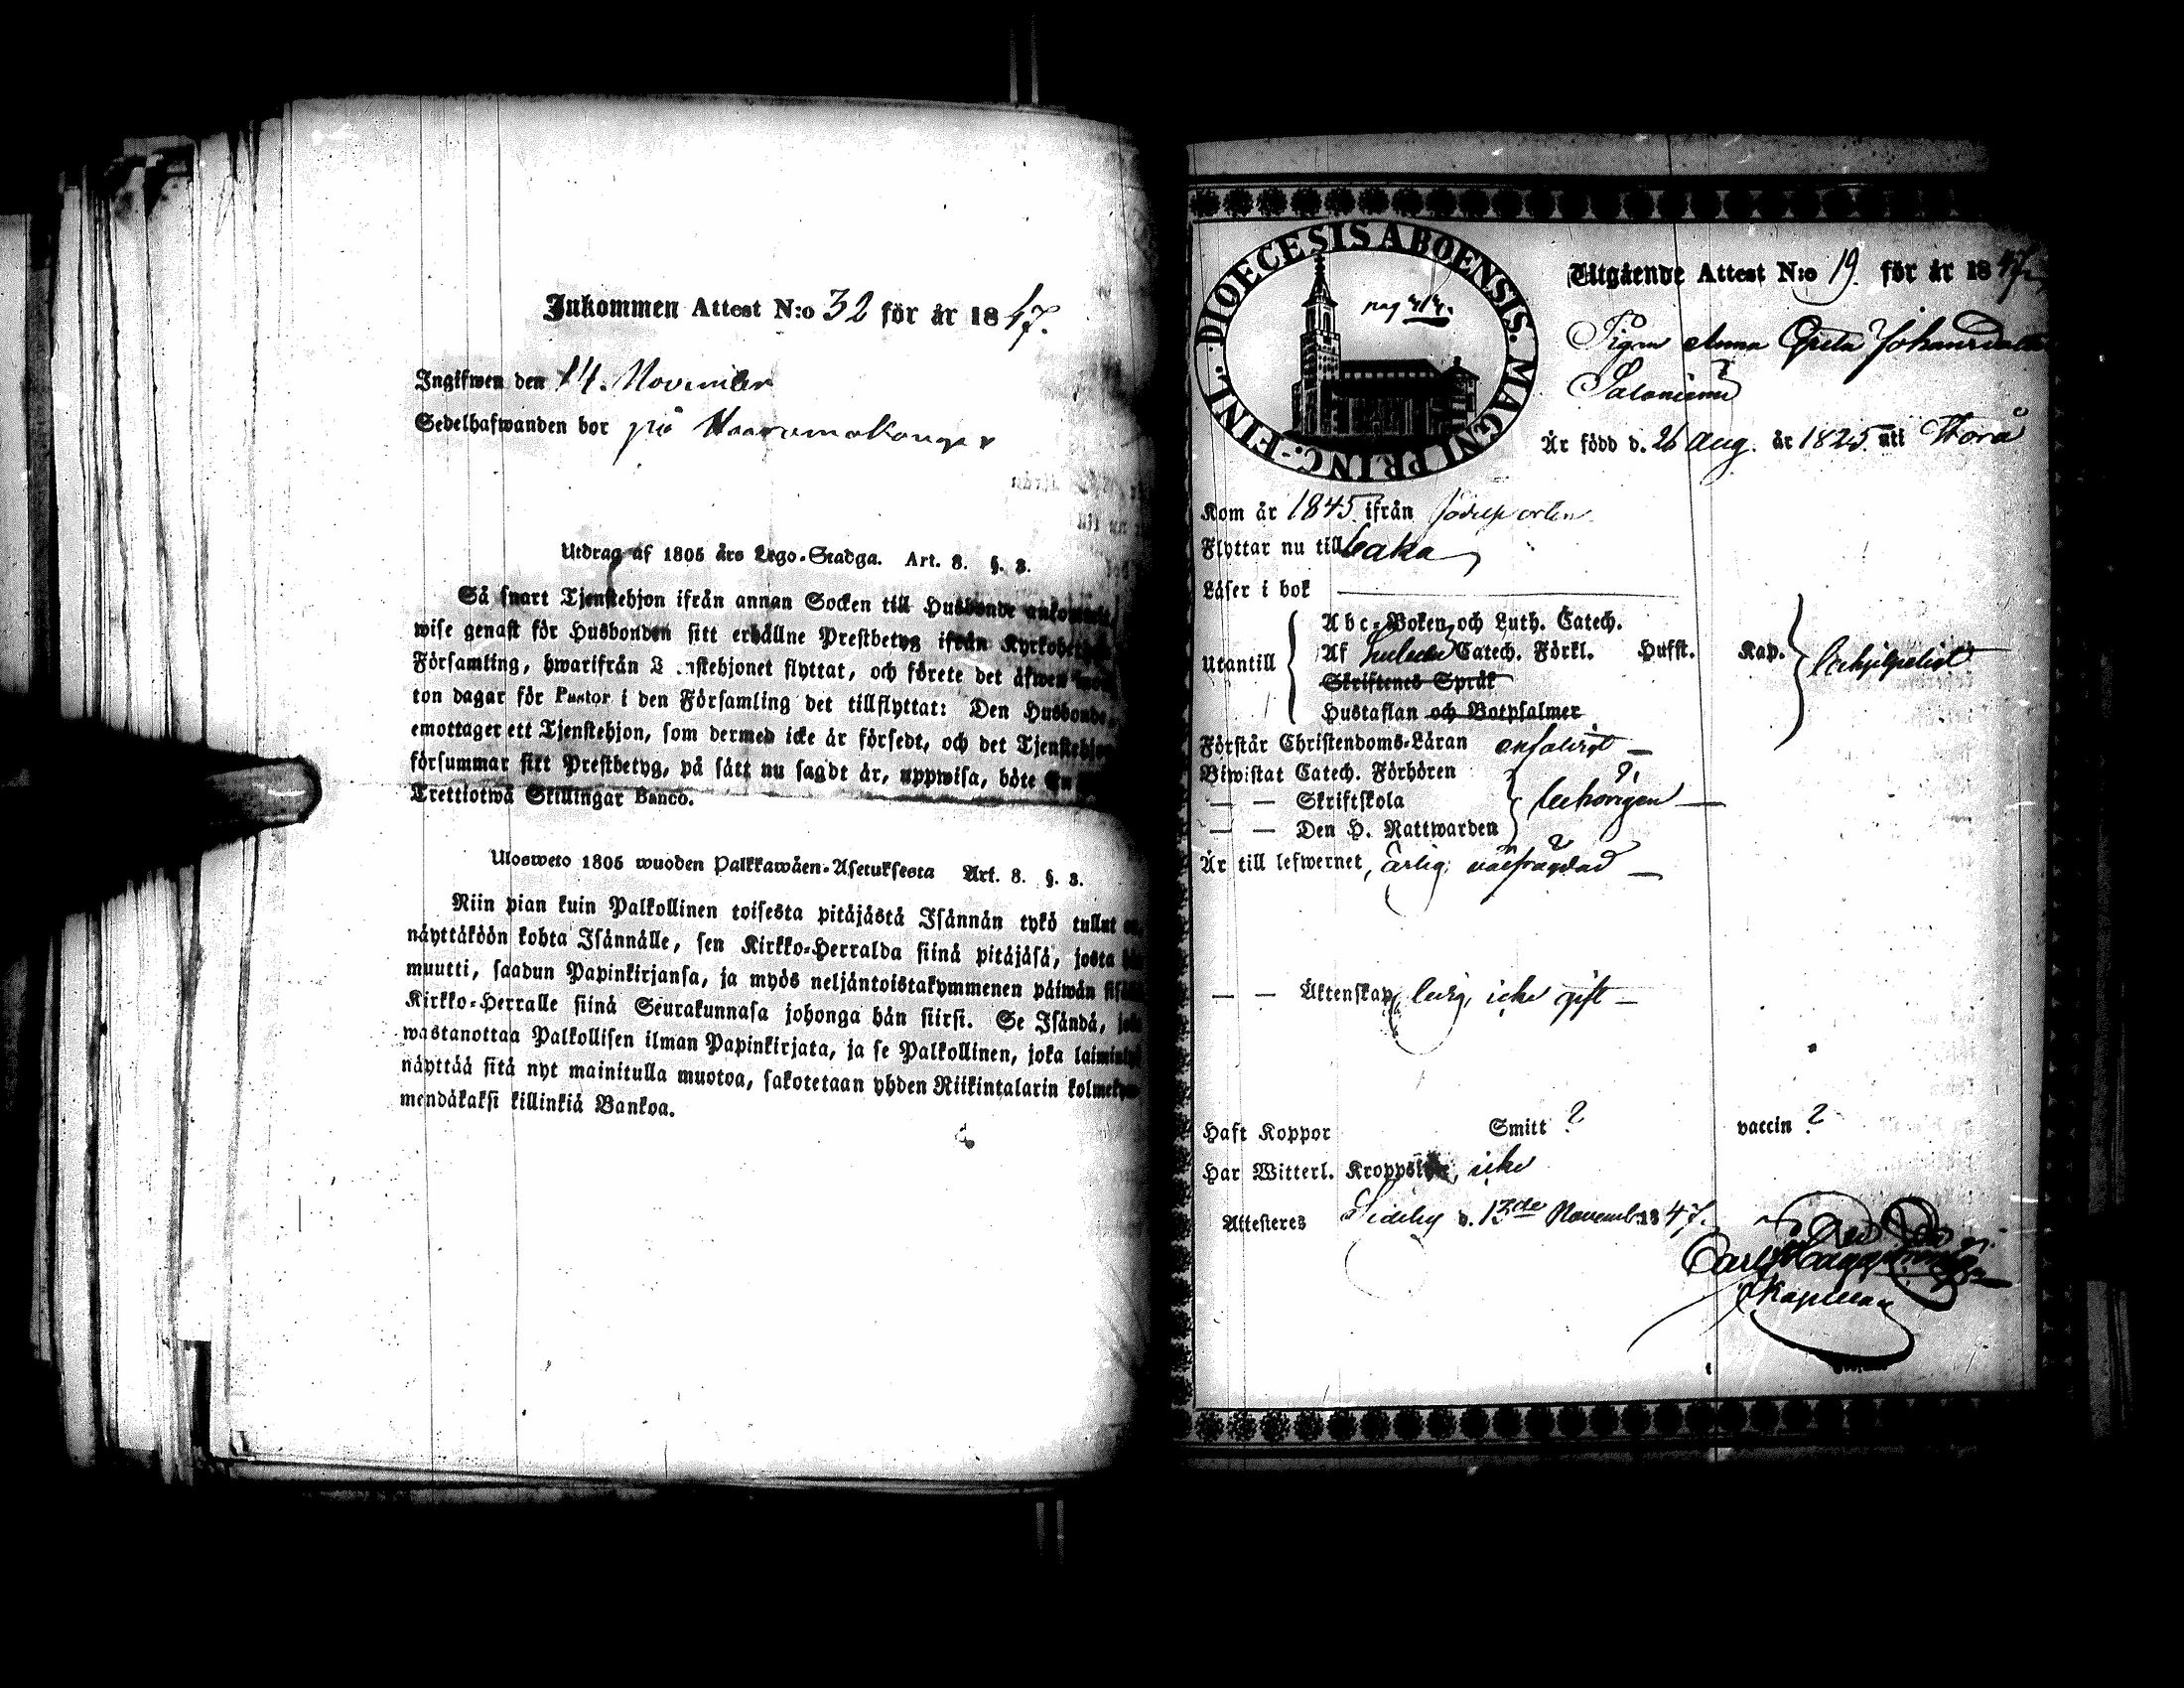 Inkommen Attest N:o 32 för år 1847.
Ingifwen den 14. November
Sedelhafwanden bor på
Utdrag af 1805 års Lego-Stadga. Art. 8. §. 3.
Så snart Tjenstehjon ifrån annan Socken till Husbonde ankommit,
wise genast för Husbonden sitt erhållne Prestbetyg ifrån
Församling, hwarifrån flyttat, och förete det äfwen
ton dagar för Pastor i den Församling det tillflyttat: Den Husbonde,
emottager ett Tjenstehjon, som dermed icke är försedt, och det Tjenstehjon
försummar sitt Prestbetyg, på sätt nu sagdt är, uppwisa, böte En
Trettiotwå Skillingar Banco.
Ulosweto 1805 wuoden Palkkawäen-Asetuksesta Art. 8. §. 3.
Niin pian kuin Palkollinen toisesta pitäjästä Isännän tykö tullut on,
näyttäköön kohta Isännälle, sen Kirkko-Herralda siinä pitäjäsä, josta hän
muutti, saadun Papinkirjansa, ja myös neljäntoistakymmenen päiwän
Kirkko-Herralle siinä Seurakunnasa johonga hän siirsi. Se Isändä, joka
wastanottaa Palkollisen ilman Papinkirjata, ja se Palkollinen, joka
näyttää sitä nyt mainitulla muotoa, sakotetaan yhden Riikintalarin
mendäkaksi killinkiä Bankoa.
DIOECESIS ABOENSIS. MAGNI PRINC. FINL.
pag
Utgående Attest N:o 19. för år 1847
Pigan Anna Greta Johansdotter
Är född d. 26 Aug. år 1825 uti Storå
Kom år 1845 ifrån födelseorten
Flyttar nu till
Läser i bok
Utantill
Abc-Boken och Luth. Catech.
Af Catech. Förkl. Husst. Kap.
Skriftenes Språk
Hustaflan och Botpsalmer
Förstår Christendoms-Läran enfaldigt
Biwistat Catech. Förhören
— — Skriftskola
— — Den H. Nattwarden
behörigen
Är till lefwernet, ärlig, välfrägdad
— — Äktenskap, ledig, icke gift
Haft Koppor Smitt ? vaccin ?
Har Witterl. Kroppslyte, icke
Attesteres Sideby d. 13de Novemb. 1847.
Carl
Kapellan